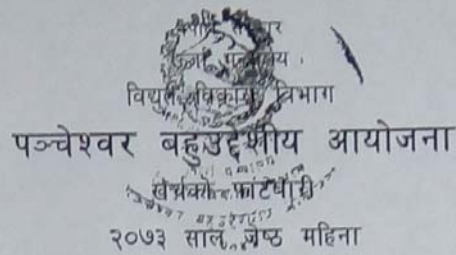 नेपाल सरकार
ऊर्जा मन्त्रालय
विद्युत विकास विभाग
पञ्चेश्वर बहुउद्देश्यीय आयोजना
खर्चको फांटवारी
२०७३ साल जेष्ठ महिना